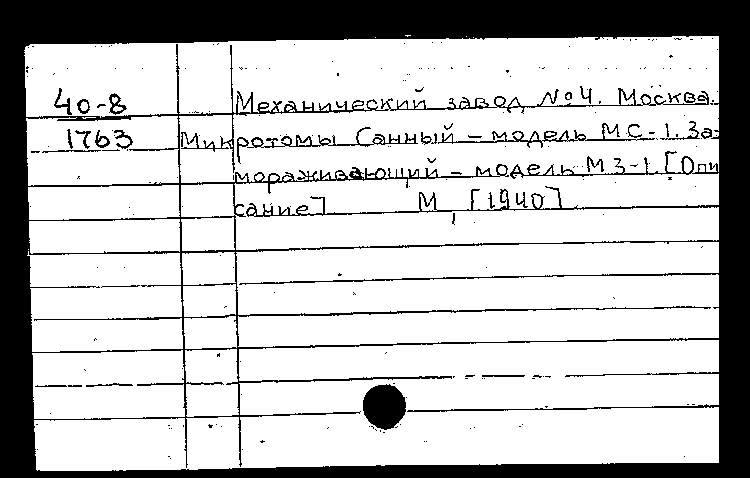 40-8
1763
Механический завод №4. Москва.
Микротомы Санный – модель МС-1. За-
мораживающий – модель МЗ-1. [Опи
сание] М, [1940]